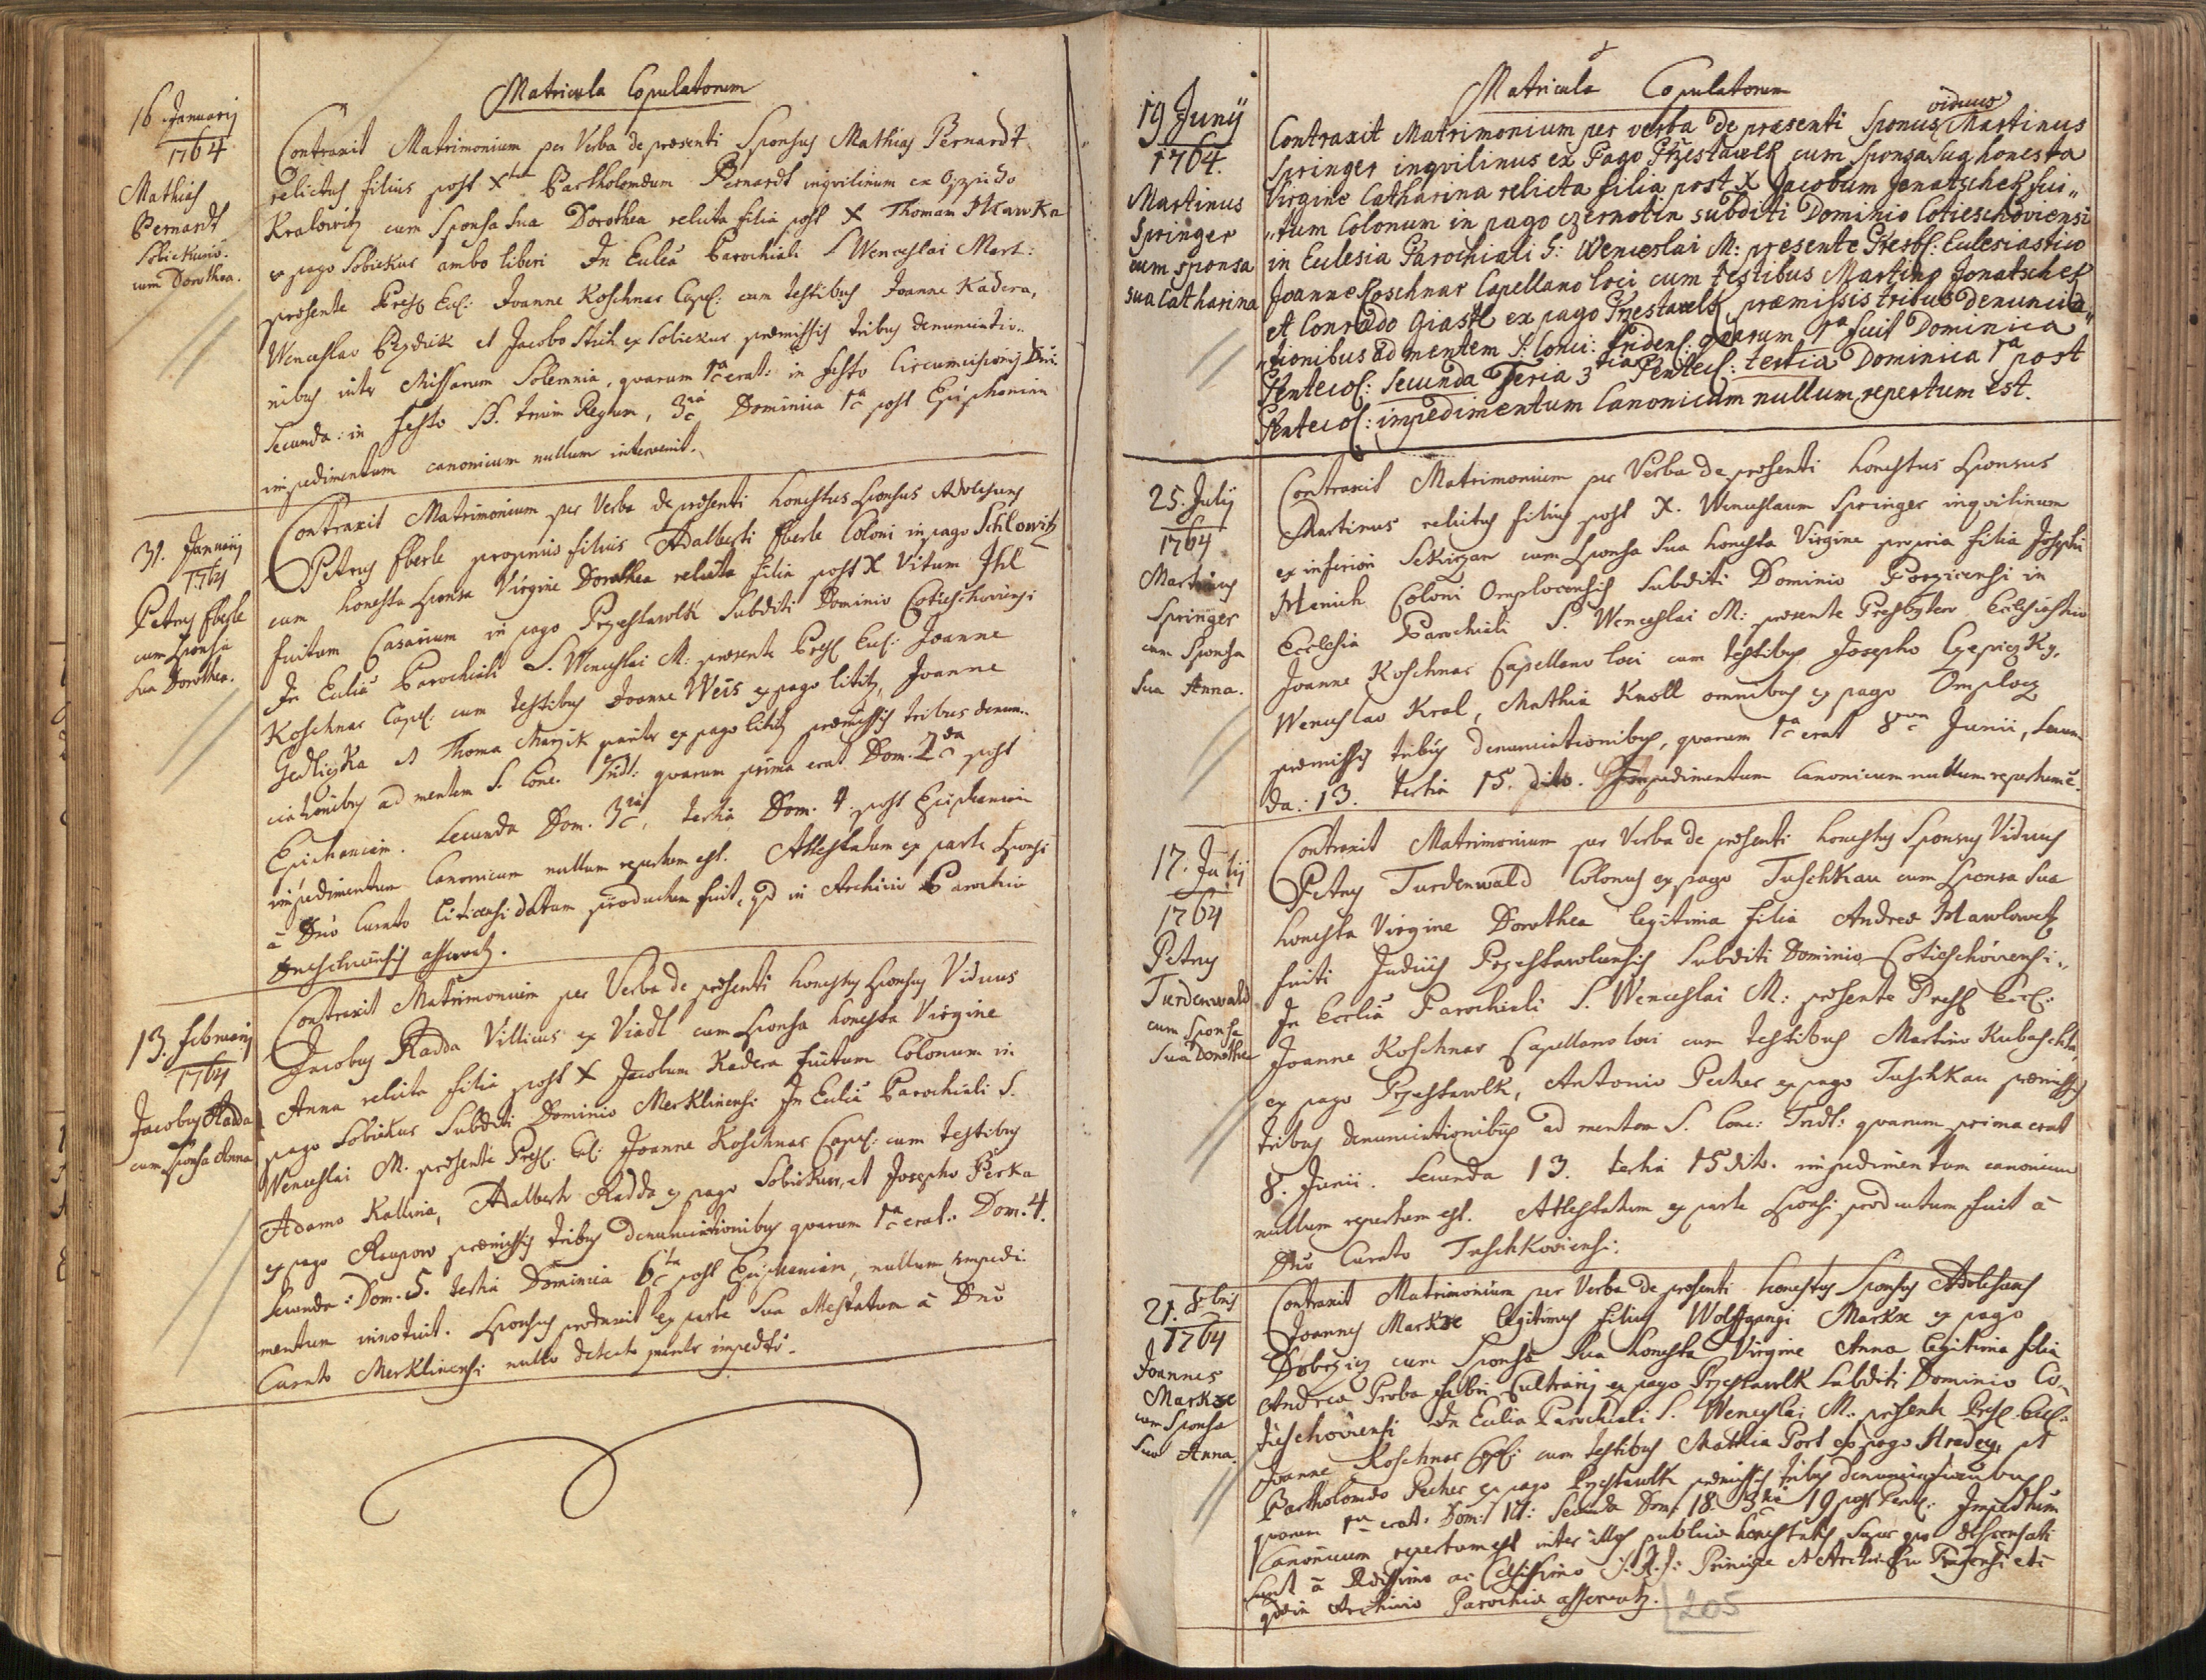 Matricula Copulatorum
16 Januarij
1764
Mathias
Bernardt
Sobiekurÿ.
cum Dorothea.
Contraxit Matrimonium per Verba de præsenti Sponsus Mathias Bernardt
relictus filius post X Bartholomæum Bernardt inqvilinum ex Oppido
Kralowitz cum Sponsa sua Dorothea relicta filia post X Thomam Hlawka
ex pago Sobiekur ambo liberi In Eccliâ Parochiali S Wenceslai Mart:
præsente Presb Eccl: Joanne Koschnar Capel: cum testibus Joanne Kadera,
Wenceslao Bezdiek et Jacobo Stich ex Sobiekur præmissis tribus denuntiatio..
nibus inter Missarum Solemnia, quarum 1ma erat: in festo Circumcisionis Dni.
Secunda: in festo SS. trium Regum, 3tia Dominica 1ma post Epiphaniam
impedimentum canonicum nullum intervenit.
31. Januarij
1764
Petrus Eberle
cum Sponsa
sua Dorothea.
Contraxit Matrimonium per Verba de præsenti honestus Sponsus Adolescens
Petrus Eberle proprius filius Adalberti Eberle Coloni in pago Schlowitz
cum honesta Sponsa Virgine Dorothea relicta filia post X Vitum Ihl
fuitum Casarium in pago Przestawlk Subditi Dominio Cotieschoviensi
In Eccliâ Parochiali S. Wenceslai M: præsente Presb Eccl: Joanne
Koschnar Capel: cum testibus Joanne Weis ex pago Lititz, Joanne
Jedliczka et Thoma Marzik pariter ex pago Lititz præmissis tribus denun..
ciationibus ad mentem S. Conc. Tridt: quarum prima erat Dom. 2da post
Epiphaniam. Secunda Dom. 3tia, tertia Dom. 4. post Epiphaniam
impedimentum Canonicum nullum repertum est. Attestatum ex parte Sponsi
à Dno Curato Liticensi datum productum fuit, qd in Archivio Parochiæ
asservatz.
13. Februarij
1764
Jacobus Radda
cum Sponsa Anna
Contraxit Matrimonium per Verba de præsenti honestus Sponsus Viduus
Jacobus Radda Villicus ex Viadl cum Sponsa honesta Virgine
Anna relicta filia post X Jacobum Kadera fuitum Colonum in
pago Sobiekur Subditi Dominio Merklinensi In Eccliâ Parochiali S.
Wenceslai M. præsente Presb: Ecl: Joanne Koschnar Capel: cum testibus
Adamo Kallina, Adalberto Radda ex pago Sobiekur, et Josepho Perka
ex pago Raupow præmissis tribus denunciationibus quarum 1ma erat: Dom: 4.
Secunda: Dom. 5. tertia Dominica 6ta post Epiphaniam, nullum impedi
mentum innotuit. Sponsus produxit ex parte sua attestatum à Dno
Curato Merklinensi nullo detecto pariter impedto.
Matricula Copulatorum
19 Junÿ
1764.
Martinus
Springer
cum sponsa
sua Catharina
viduus
Contraxit Matrimonium per verba de præsenti Sponus Martinus
Springer inqvilinus ex Pago Przestawlk cum sponsa sua honesta
Virgine Catharina relicta filia post X Jacobum Jenatschek fui„
„tum Colonum in pago czernotin subditi Dominio Cotieschoviensi
in Eclesia Parochiali S: Wenceslai M: presente Presb: Eclesiastico
Joanne Koschnar Capellano loci cum testibus Martino Jonatschek
et Conrado Giastl ex pago Przestawlk præmissis tribus denuncia„
„tionibus ad mentem S: Conci: Tridens: quarum 1ma fuit Dominica
Pentecos: secunda Feria 3tia Pentecs: tertia Dominica 1ma post
Pentecos: impedimentum Canonicum nullum repertum est.
25. Julij
1764
Martinus
Springer
cum Sponsa
sua Anna.
Contraxit Matrimonium per Verba de præsenti honestus Sponsus
Martinus relictus filius post X. Wenceslaum Springer inqvilinum
ex inferiori Sekirzan cum Sponsa sua honesta Virgine propria filia Josephi
Henich Coloni Omplocensis Subditi Dominio Porzicensi in
Ecclesia Parochiali S. Wenceslai M: præsente Presbytero Ecclesiastico
Joanne Koschnar Capellano loci cum testibus Josepho Czepiczky,
Wenceslao Kral, Mathia Knoll omnibus ex pago Omplocz
præmissis tribus denunciationibus, quarum 1ma erat 8va Junii, Secun
da: 13. tertia 15. dito. Impedimentum Canonicum nullum repertum ẽ.
17. Julij
1764
Petrus
Turdenwald
cum Sponsa
sua Dorothea
Contraxit Matrimonium per Verba de præsenti honestus Sponsus Viduus
Petrus Turdenwald Colonus ex pago Tuschkau cum Sponsa sua
honesta Virgine Dorothea legitimia filia Andreæ Hawlowetz
fuiti Judicis Przestawlcensis Subditi Dominio Cotieschoviensi..
In Eccliâ Parochiali S. Wenceslai M: præsente Presb Eccl:
Joanne Koschnar Capellano loci cum testibus Martino Kubaschta,
ex pago Przestawlk, Antonio Pecher ex pago Tuschkau præmissis
tribus denunciationibus ad mentem S. Conc: Tridt: quarum prima erat
8. Junii. Secunda 13. tertia 15 dito. impedimentum canonicum
nullum repertum est. Attestatum ex parte Sponsi productum fuit à
Dno Curato Tuschkoviensi.
21. 8bris
1764
Joannes
Markze
cum Sponsa
sua Anna.
Contraxit Matrimonium per Verba de præsenti honestus Sponsus Adolescens
Joannes Markze legitimus filius Wolffgangi Markze ex pago
Dobrzicz cum Sponsa sua honesta Virgine Anna legitima filia
Andreæ Proba fabri Cultrarij ex pago Przestawlk Subditi Dominio Co„
tieschoviensi In Eccliâ Parochiali S. Wenceslai M. præsente Presb Eccl:
Joanne Koschnar Capel: cum testibus Mathia Port ex pago Hradecz, et
Bartholomæo Pecher ex pago Przestawlk præmissis tribus denunciationibus
quarum 1ma erat: Dom: 17: Secunda Dom: 18. 3tia 19 post Pent: Impedtum
Canonicum repertum est inter illos publicæ honestatis super quo dispensati
sunt à Rdissimo ac Celsissimo S: R: I: Principe et Archi-Epo Pragensi etc
qd in Archivio Parochiæ asservatz.
205